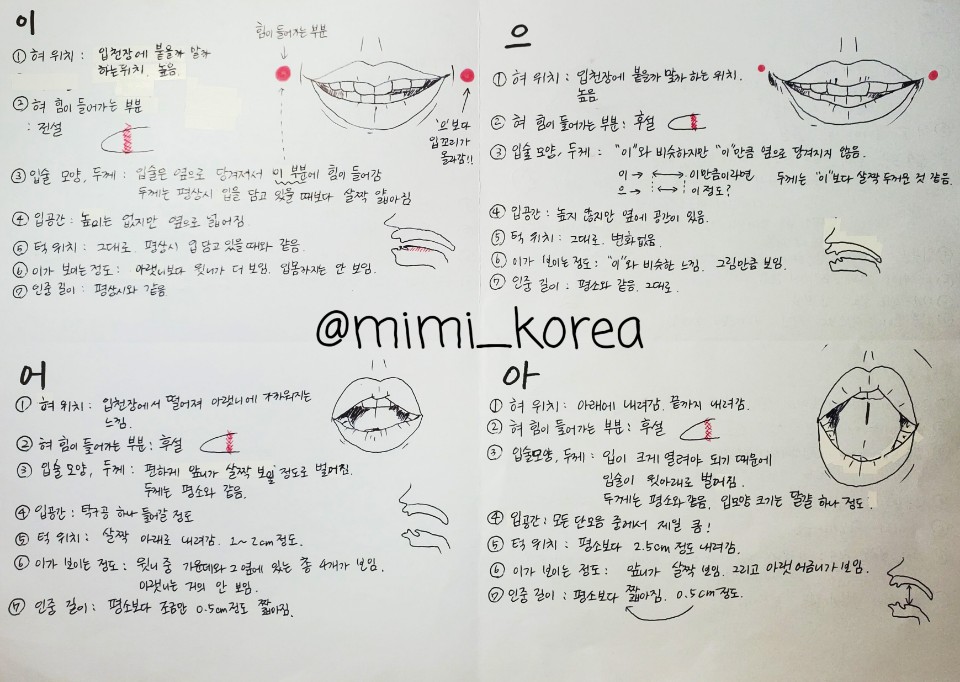 이
힘이 들어가는 부분
① 혀 위치 : 입천장에 붙을까 말까
하는 위치. 높음.
② 혀 힘이 들어가는 부분
: 전설
'으'보다
입꼬리가
올라감!!
③ 입술 모양, 두께 : 입술은 옆으로 당겨져서 이 부분에 힘이 들어감
두께는 평상시 입을 닫고 있을 때보다 살짝 얇아짐
④ 입공간 : 높이는 없지만 옆으로 넓어짐
⑤ 턱 위치 : 그대로. 평상시 입 닫고 있을 때와 같음.
⑥ 이가 보이는 정도 : 아랫니보다 윗니가 더 보임. 잇몸까지는 안 보임.
⑦ 인중 길이 : 평상시와 같음
으
① 혀 위치 : 입천장에 붙을까 말까 하는 위치.
높음
② 혀 힘이 들어가는 부분 : 후설
③ 입술 모양, 두께 : "이"와 비슷하지만 "이"만큼 옆으로 당겨지지 않음.
이 → 이만큼이라면
으 → 이 정도?
두께는 "이"보다 살짝 두꺼운 것 같음.
④ 입공간 : 높지 않지만 옆에 공간이 있음.
⑤ 턱 위치 : 그대로. 변화없음.
⑥ 이가 보이는 정도 : "이"와 비슷한 느낌. 그림만큼 보임.
⑦ 인중 길이 : 평소와 같음. 그대로.
@mimi_korea
어
① 혀 위치 : 입천장에서 떨어져 아랫니에 가까워지는
느낌.
② 혀 힘이 들어가는 부분 : 후설
③ 입술 모양, 두께 : 편하게 앞니가 살짝 보일 정도로 벌어짐.
두께는 평소와 같음.
④ 입공간 : 탁구공 하나 들어갈 정도
⑤ 턱 위치 : 살짝 아래로 내려감. 1~2cm 정도.
⑥ 이가 보이는 정도 : 윗니 중 가운데와 그 옆에 있는 총 4개가 보임.
아랫니는 거의 안 보임.
⑦ 인중 길이 : 평소보다 조금만 0.5cm정도 짧아짐.
아
① 혀 위치 : 아래에 내려감. 끝까지 내려감.
② 혀 힘이 들어가는 부분 : 후설
③ 입술모양, 두께 : 입이 크게 열려야 되기 때문에
입술이 윗아래로 벌어짐.
두께는 평소와 같음. 입모양 크기는 달걀 하나 정도.
④ 입공간 : 모든 단모음 중에서 제일 큼!
⑤ 턱 위치 : 평소보다 2.5cm 정도 내려감.
⑥ 이가 보이는 정도 : 앞니가 살짝 보임. 그리고 아랫 어금니가 보임.
⑦ 인중 길이 : 평소보다 짧아짐. 0.5cm정도.